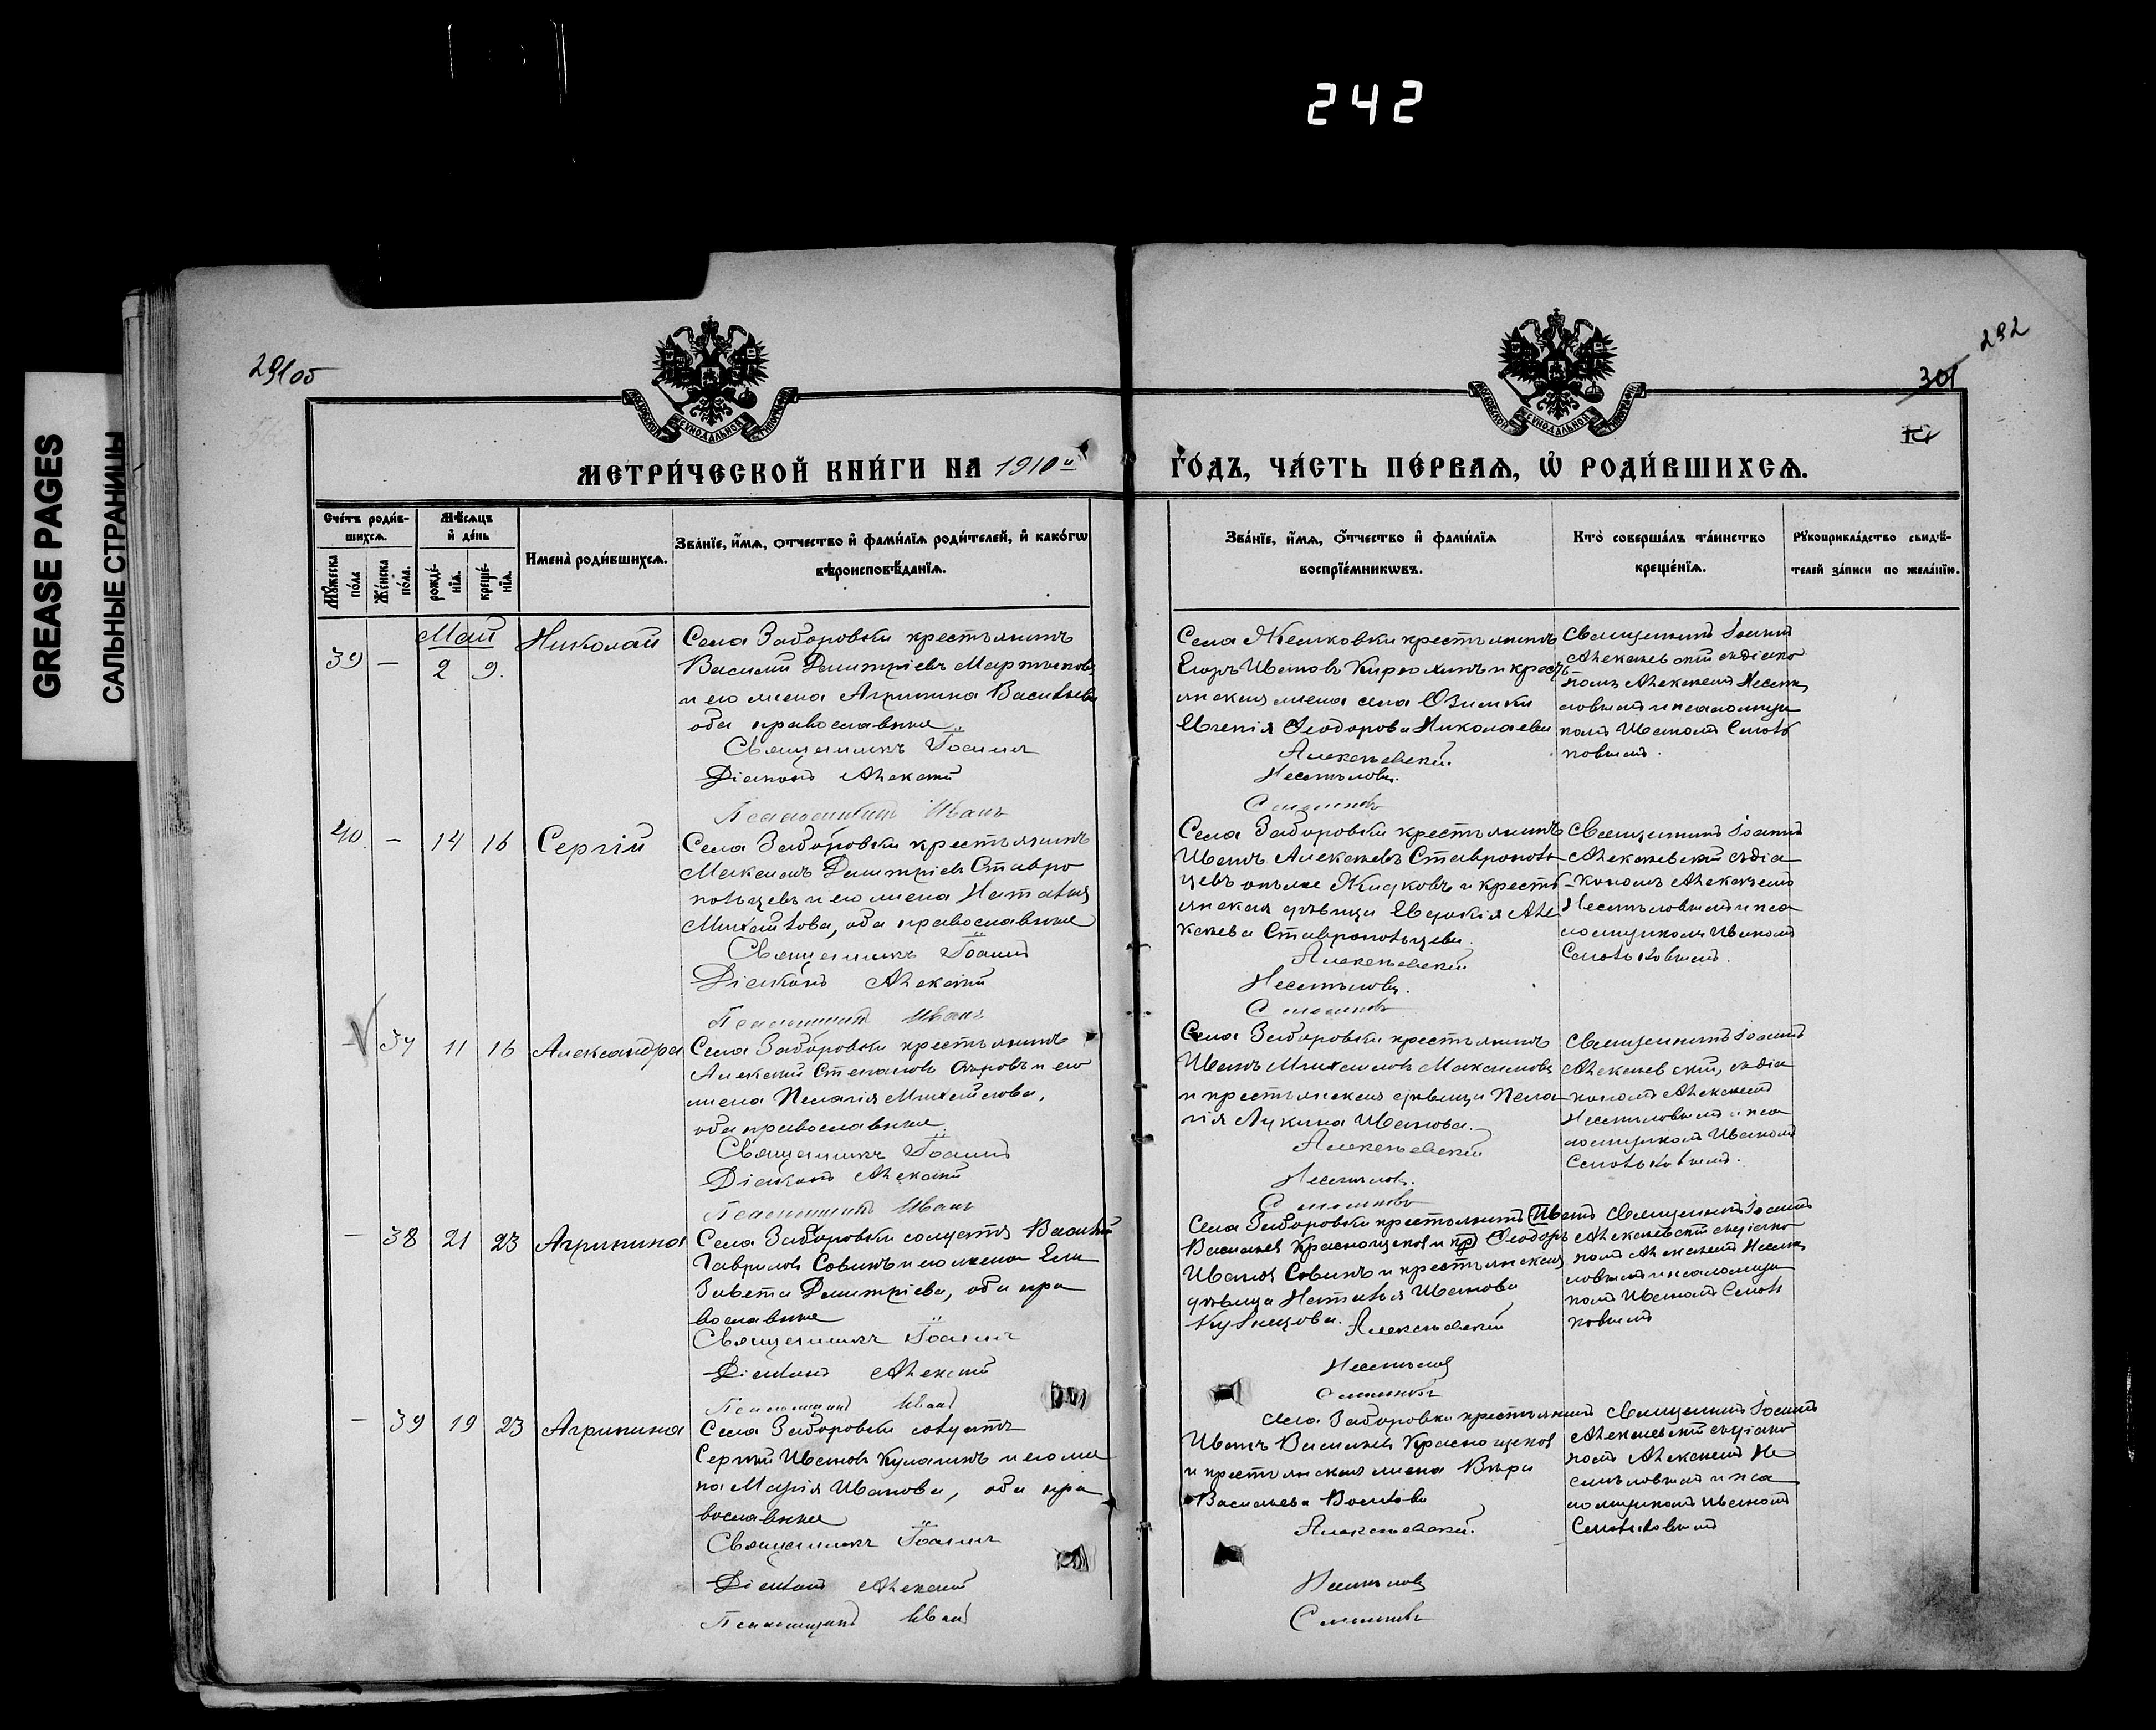 242
GREASE PAGES
САЛЬНЫЕ СТРАНИЦЫ
291об
292
301
МЕТРИ́ЧЕСКОЙ КНИ́ГИ НА 1910й
ГО́ДЪ, ЧА́СТЬ ПЕ́РВАѦ, Ѿ РОДИ́ВШИХСѦ.
Сче́тъ роди́в-
шихсѧ.
Мꙋ́жеска по́ла
Же́нска по́ла.
Мѣ́сѧцъ
и де́нь
рожде́-
нїѧ.
креще́-
нїѧ.
Имена̀ роди́вшихсѧ.
Зва́нїе, и҆́мѧ, ѻ҆́тчество и҆ фами́лїѧ роди́телей, и҆ како́гѡ
вѣроисповѣ́данїѧ.
Зва́нїе, и҆́мѧ, ѻ҆́тчество и҆ фами́лїѧ
воспрїе́мникѡвъ.
Кто̀ соверша́лъ та́инство
креще́нїѧ.
Рꙋкоприкла́дство свидѣ́-
телей за́писи по жела́нїю.
Май
39 – 2 9. Николай
Села Заборовки крестьянинъ
Василій Димитріевъ Мартыновъ
и его жена Агрипина Васильева
оба православные.
Священникъ Іоаннъ
Діаконъ Алексій
Псаломщикъ Иванъ
Села Жемковки крестьянинъ
Егоръ Ивановъ Кирюхинъ и кресть-
янская жена села
Евгенія Ѳеодорова Николаева
Алексѣевскій
Несмѣловъ.
Священникъ Іоаннъ
Алексѣевскій съ діако
номъ Алексѣемъ Несмѣ
ловымъ и псаломщи
комъ Иваномъ
40. – 14 16 Сергій
Села Заборовки крестьянинъ
Максимъ Димитріевъ Ставро
польцевъ и его жена Наталія
Михайлова, оба православные
Священникъ Іоаннъ
Діаконъ Алексій
Псаломщикъ Иванъ
Села Заборовки крестьянинъ
Иванъ Алексѣевъ Ставрополь
цевъ онъ же Жидковъ и кресть-
янская дѣвица Евдокія Але
ксѣева Ставропольцева.
Алексѣевскій
Несмѣловъ.
Священникъ Іоаннъ
Алексѣевскій съ діа
кономъ Алексѣемъ
Несмѣловымъ и пса
ломщикомъ Иваномъ
– 37 11 16 Александра
Села Заборовки крестьянинъ
Алексѣй Степановъ и его
жена Пелагія Михайлова,
оба православные.
Священникъ Іоаннъ
Діаконъ Алексій
Псаломщикъ Иванъ
Села Заборовки крестьянинъ
Иванъ Михайловъ Максимовъ
и крестьянская дѣвица Пела-
гія Лукина Иванова.
Алексѣевскій
Несмѣловъ.
Священникъ Іоаннъ
Алексѣевскій, съ діа
кономъ Алексѣемъ
Несмѣловымъ и пса
ломщикомъ Иваномъ
– 38 21 23 Агрипина
Села Заборовки солдатъ Василій
Гавриловъ Совинъ и его жена Ели
завета Димитріева, оба пра
вославные
Священникъ Іоаннъ
Діаконъ Алексій
Псаломщикъ Иванъ
Села Заборовки крестьянинъ Иванъ
Васильевъ Краснощековъ и кр Ѳеодоръ
Ивановъ Совинъ и крестьянская
дѣвица Наталья Иванова
Кузнецова. Алексѣевскій
Несмѣловъ
Священникъ Іоаннъ
Алексѣевскій съ діако
номъ Алексѣемъ Несмѣ
ловымъ и псаломщи
комъ Иваномъ
– 39 19 23 Агрипина
Села Заборовки солдатъ
Сергѣй Ивановъ Кулагинъ и его же
на Марія Иванова, оба пра
вославные
Священникъ Іоаннъ
Діаконъ Алексій
Псаломщикъ Иванъ
Села Заборовки крестьянинъ
Иванъ Васильевъ Краснощековъ
и крестьянская жена Вѣра
Васильева
Алексѣевскій.
Несмѣловъ
Священникъ Іоаннъ
Алексѣевскій съ діако
номъ Алексѣемъ Не
смѣловымъ и пса
ломщикомъ Иваномъ